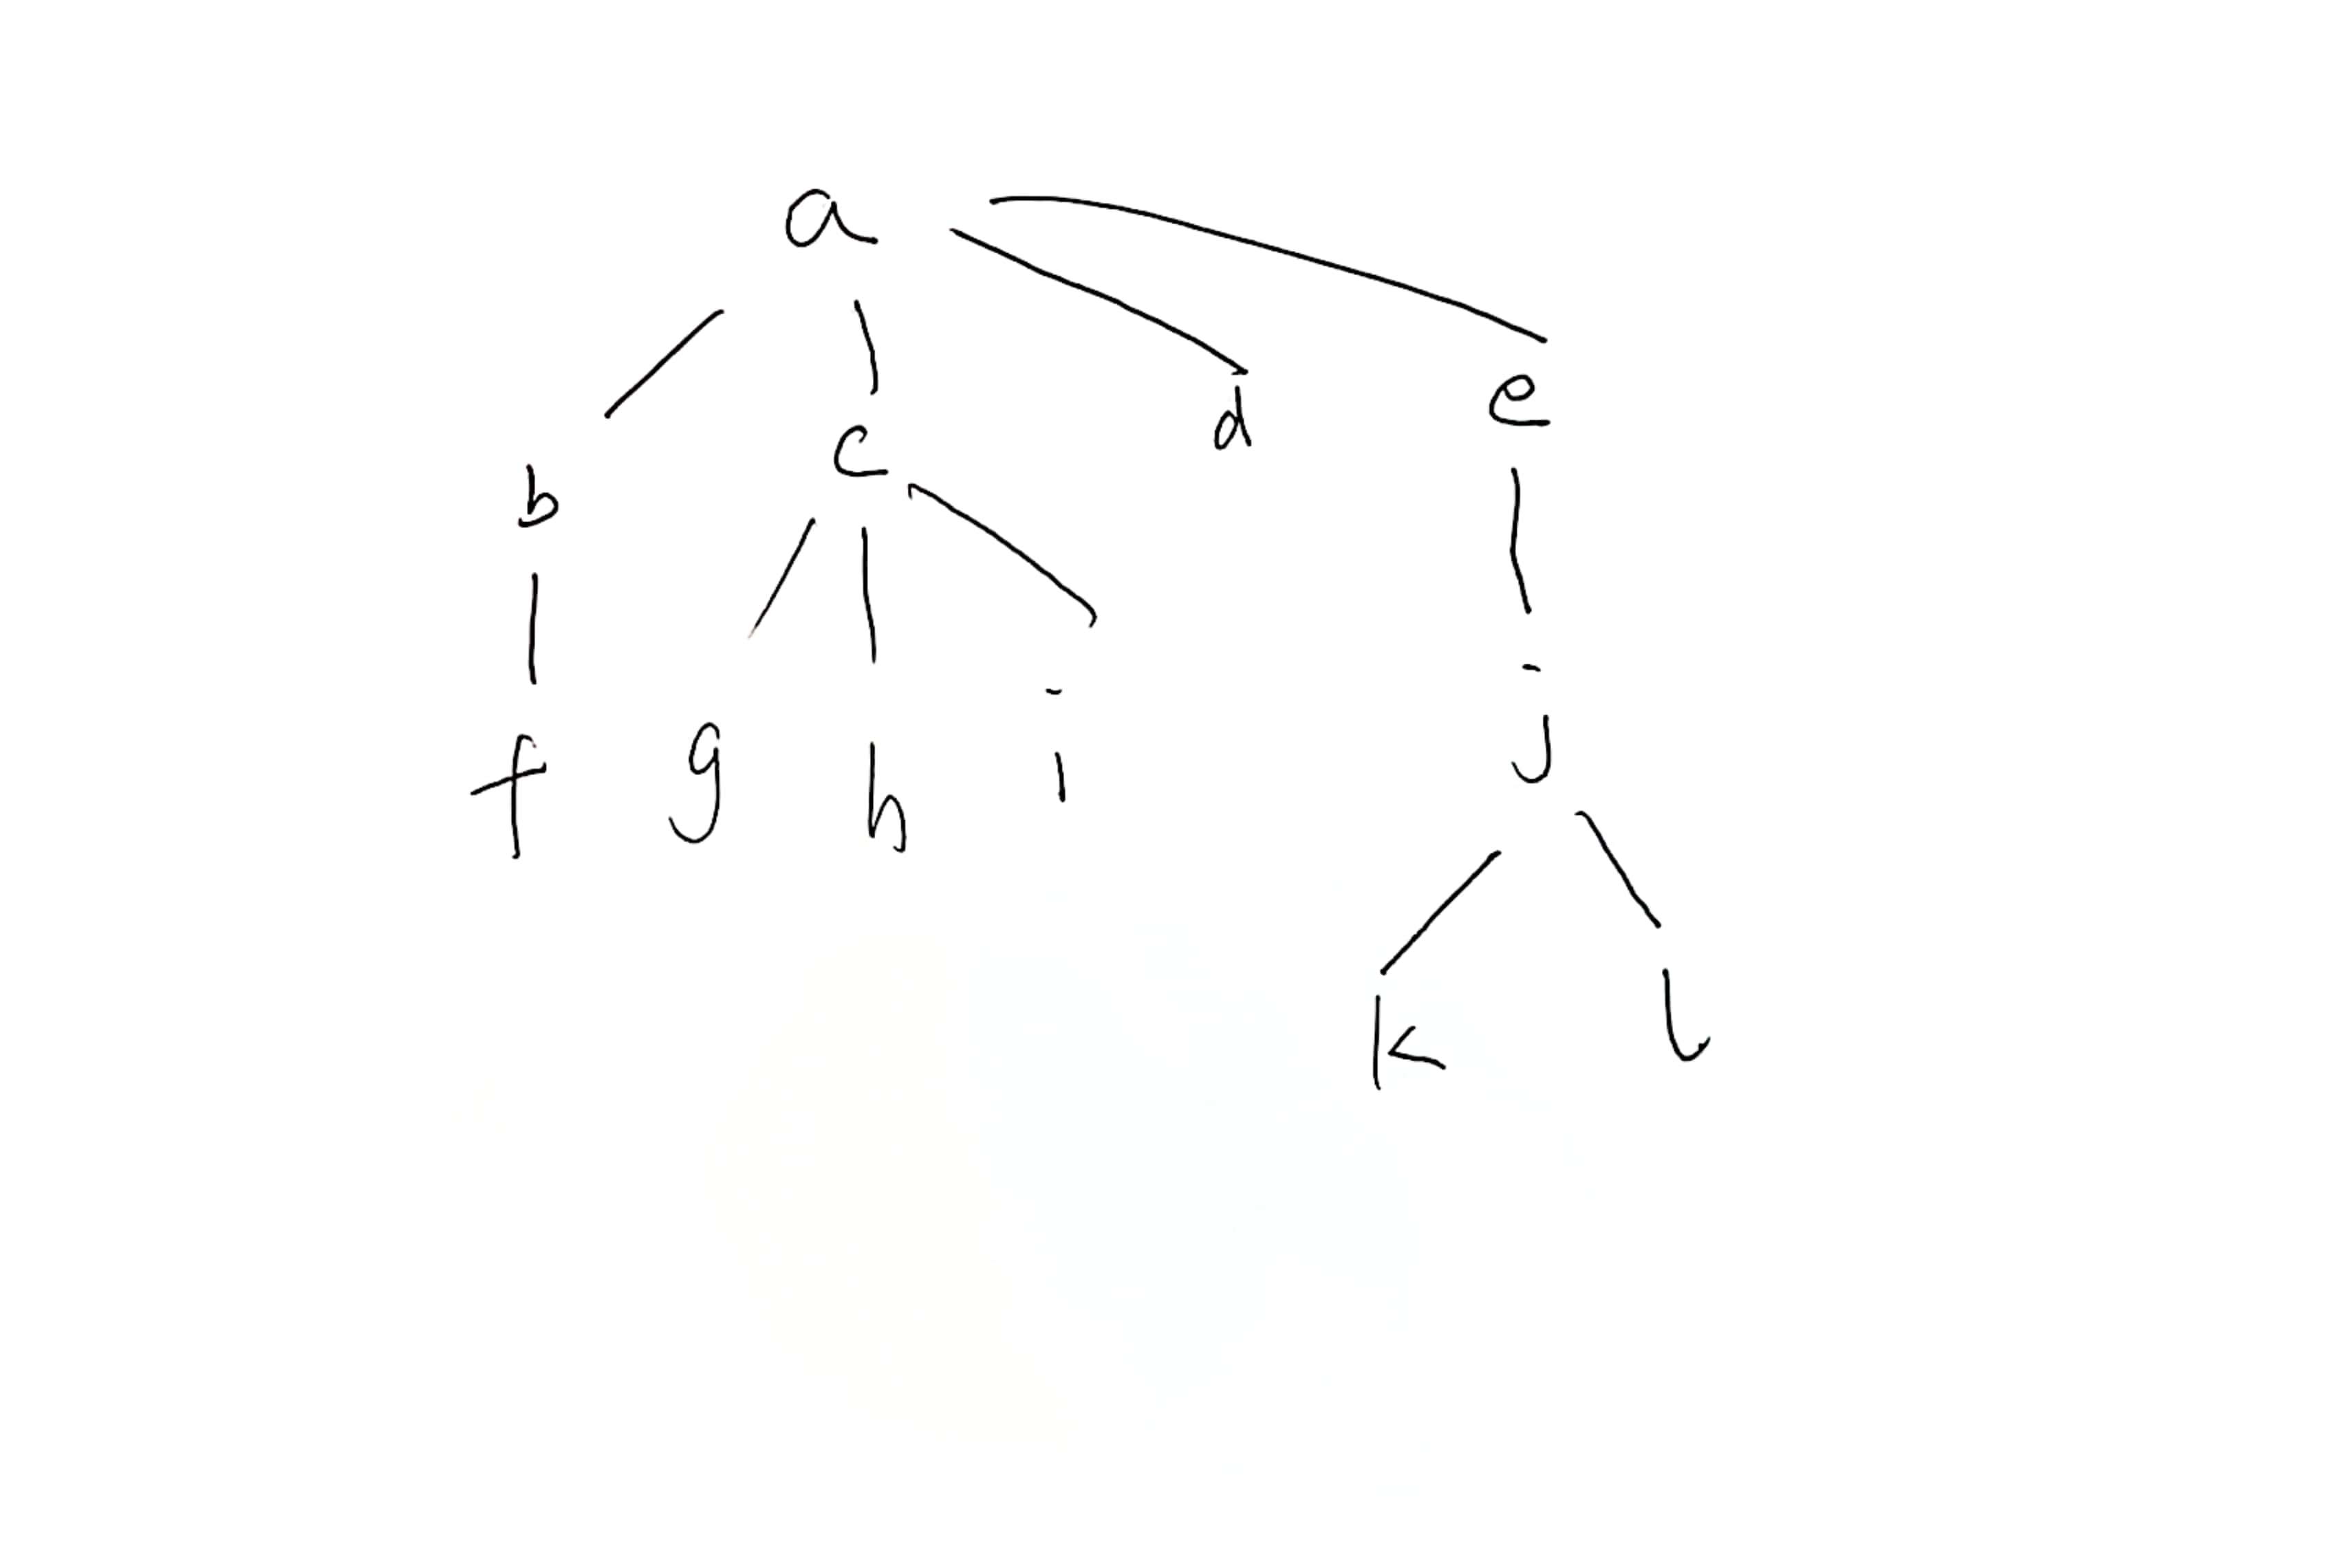 a
b c d e
f g h i j
k l